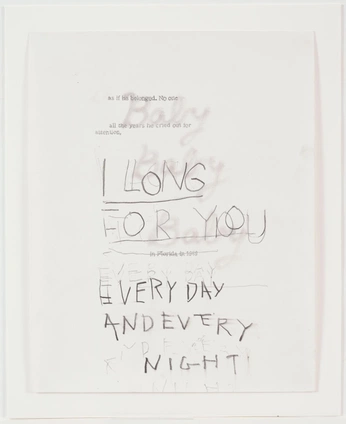 as if he belonged. No one
Baby
all the years he cried out for
Baby
I LONG
FOR YOU
Baby
in Florida in
EVERY DAY
AND EVERY
NIGHT!